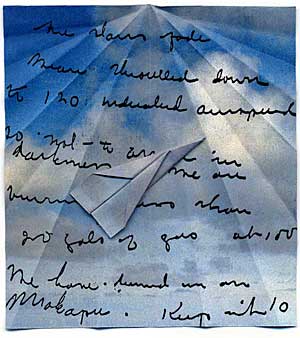 The stars fade
Mean. throttled down
to 120 indicated airspeed
so not to arrive in
darkness We are
burning less than
20 gals of gas at 100
We have tuned in on
Makapu. Keep